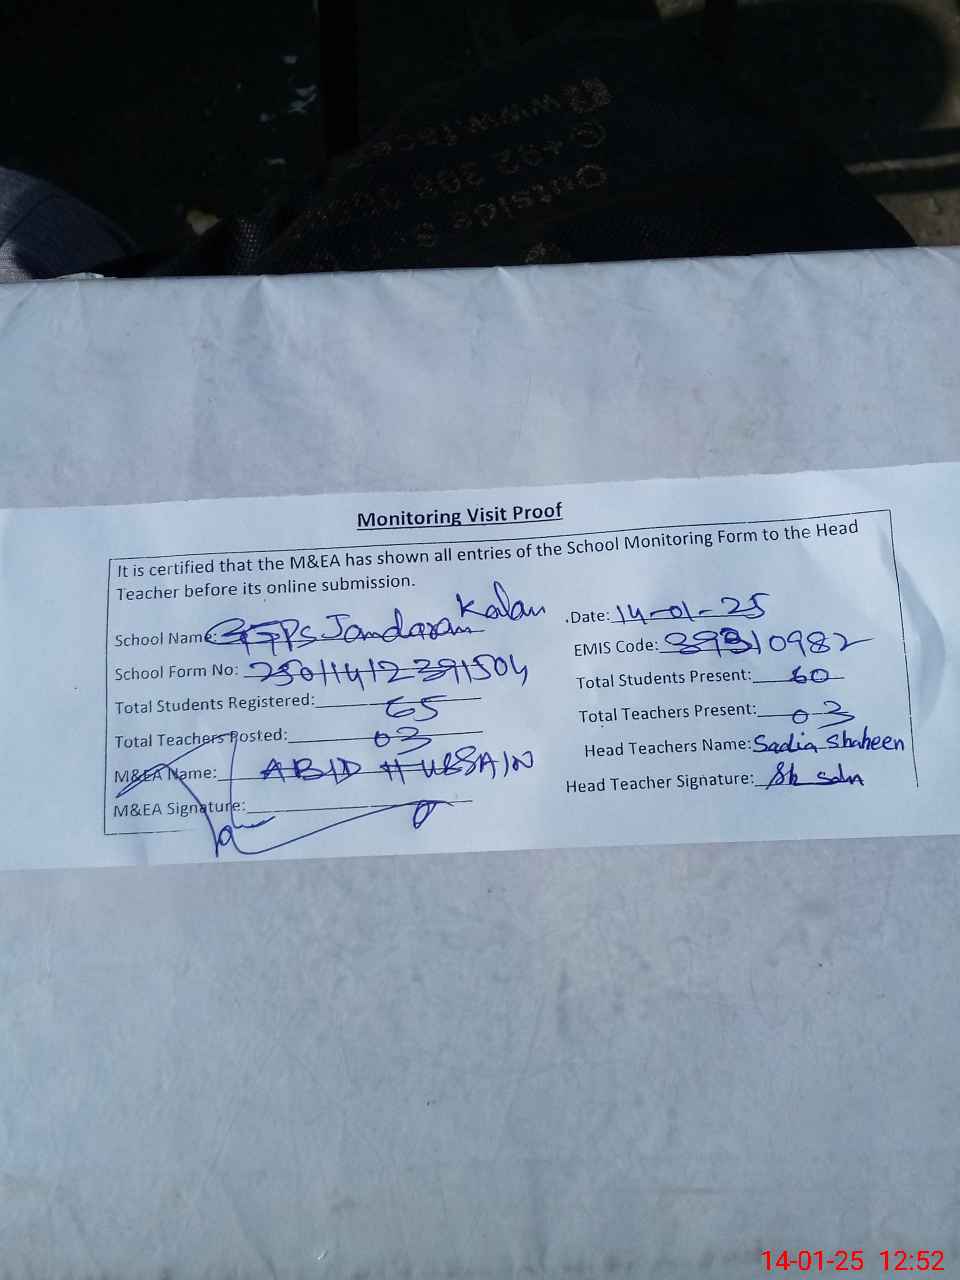 Monitoring Visit Proof
It is certified that the M&EA has shown all entries of the School Monitoring Form to the Head
Teacher before its online submission.
School Name: GGPS Jandaran Kalan
.Date: 14-01-25
School Form No: 25011412391504
EMIS Code: 39310982
Total Students Registered: 65
Total Students Present: 60
Total Teachers Posted: 03
Total Teachers Present: 03
M&EA Name: ABID HUSSAIN
Head Teachers Name: Sadia Shaheen
M&EA Signature:
Head Teacher Signature:
14-01-25 12:52